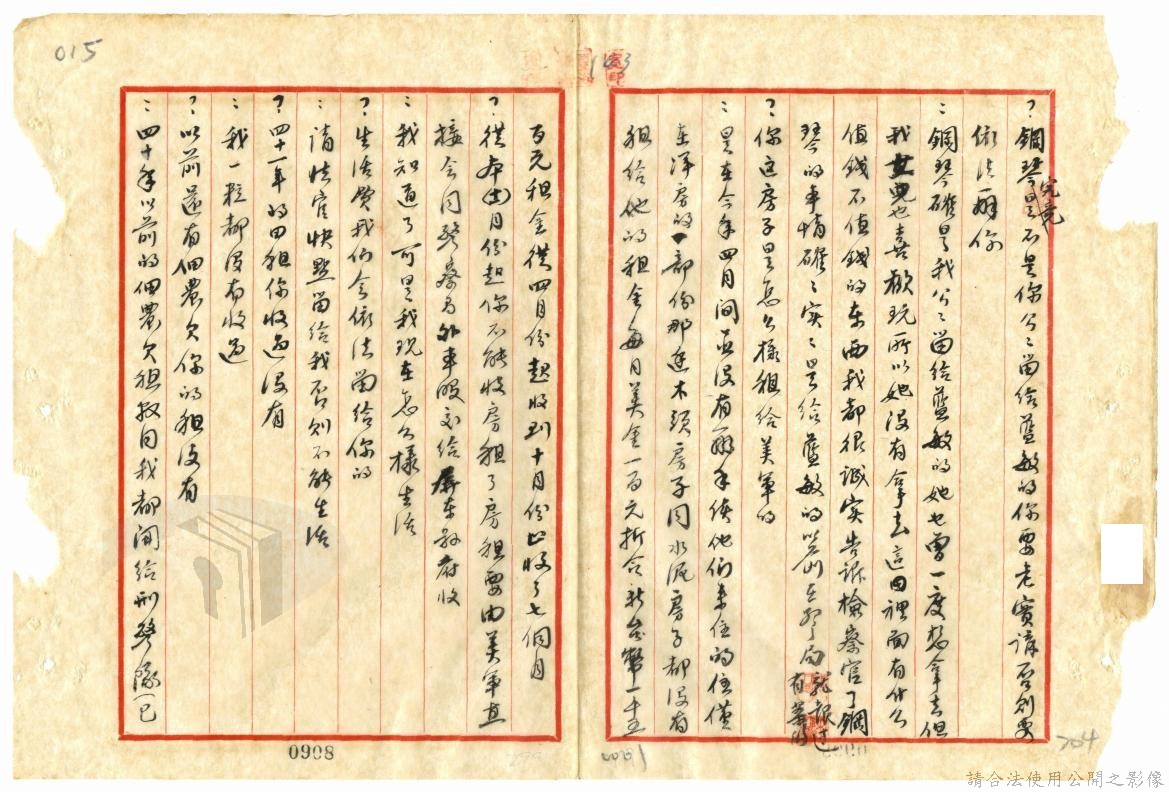 015
143
？鋼琴究竟是不是你公公留給藍敏的你要老實講否則要
依法辦你
：鋼琴確是我公公留給藍敏的她也曾一度想拿去但
我女兒也喜歡玩所以她沒有拿去這田裡面有什么
值錢不值錢的東西我都很誠實告訴檢察官了鋼
琴的事情確確實實是給藍敏的 局就報過有案的
？你這房子是怎么樣租給美軍的
：是在今年四月間 沒有辦手續他們來住的住僅
在洋房的一部份那邊木頭房子同水泥房子都沒有
租給他的租金每月美金一百元折合新台幣一千五
百元租金從四月份起收到十月份止收了七個月
？從本 月份起你不能收房租了房租要由美軍直
接会同警察局外事股交給屏東縣府收
：我知道了可是我現在怎么樣生活
？生活費我们会依法留給你的
：請法官快點留給我否則不能生活
？四十一年的田租你收過沒有
：我一粒都沒有收過
？以前還有佃農欠你的租沒有
：四十年以前的佃農欠租数目我都開給刑警隊一已
0908
704
請合法使用公開之影像